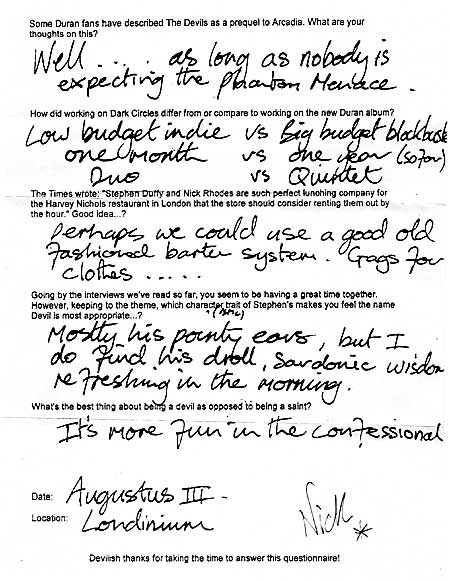 Some Duran fans have described The Devils as a prequel to Arcadia. What are your
thoughts on this?
Well .... as long as nobody is
expecting the Phantom Menace.
How did working on Dark Circles differ from or compare to working on the new Duran album?
Low budget indie vs Big budget blockbuste
one month vs one year (so far)
Duo vs Quintet
The Times wrote: "Stephen Duffy and Nick Rhodes are such perfect lunching company for
the Harvey Nichols restaurant in London that the store should consider renting them out by
the hour." Good idea...?
Perhaps we could use a good old
fashioned barter system. Gags for
clothes .....
Going by the interviews we've read so far, you seem to be having a great time together.
However, keeping to the theme, which character trait of Stephen's makes you feel the name
Devil is most appropriate...?
Mostly his pointy ears, but I
do find his droll, sardonic wisdom
refreshing in the morning.
What's the best thing about being a devil as opposed to being a saint?
It's more fun in the confessional
Date: Augustus III -
Location: Londinium
Nick *
Devilish thanks for taking the time to answer this questionnaire!